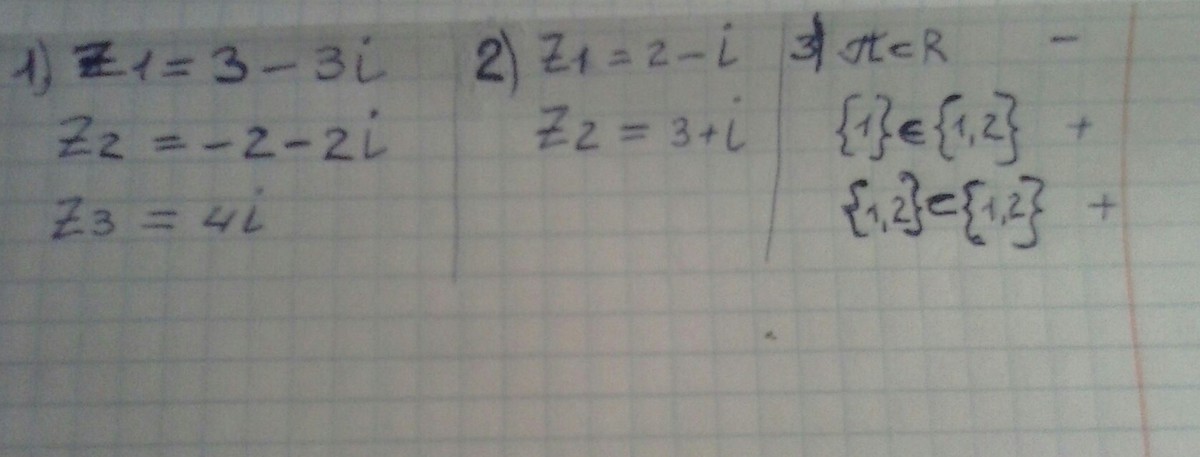 1) Z1 = 3 - 3i
Z2 = -2 - 2i
Z3 = 4i
2) Z1 = 2 - i
Z2 = 3 + i
3) π ⊂ R -
{1} ∈ {1,2} +
{1,2} ⊂ {1,2} +